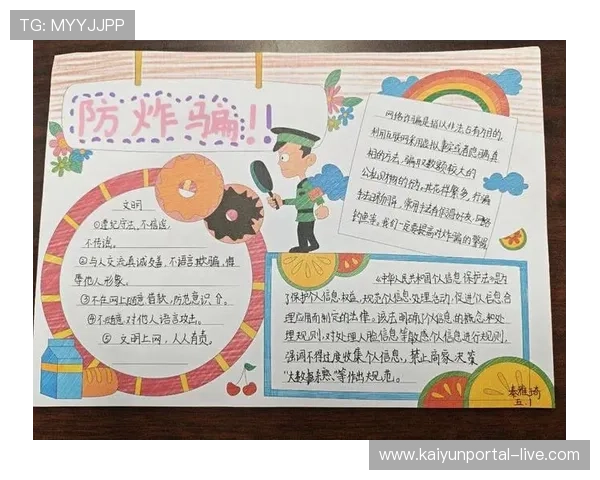 TG: MYYJJPP
防炸骗!!
文明
①遵纪守法,不信谣,
不传谣。
②与人交流真诚友善,不语言欺骗,
等他人形象。
③不在网上随意,防范意识
④不随意对他人语言攻击。
⑤ 文明上网,人人有责。
网络诈骗是指以非法占有为目的,
利用互联网采用虚拟事实或者隐瞒真
相的方法,骗取数额较大的
公私财物的行为。其花样繁多,行骗
手法,常用手法有假冒好友、网络
钓鱼等。我们一定要提高对诈骗的警惕
《中华人民共和国个信息保护法》是为
了保护个人信息权益,规范个人信息处理活动,促进个人信息合
理应用而制定的法律。该法明确了个人信息的概念和处
理规则,对处理人脸信息等敏感个人信息进行规则,
强调不得过度收集个人信息,禁止商家
"大数据杀熟"等作出规范。
秦雅琦
五.1
www.kaiyunportal-live.com